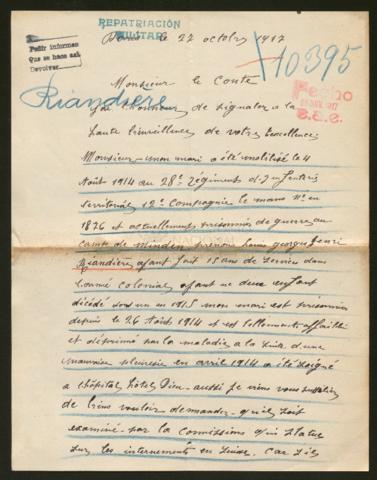 REPATRIACIÓN
MILITAR
Paris le 27 octobre 1917
Pedir informes
Que se hace así
Devolver
10395
Riandière
Hecho
1917
S.E.C.
Monsieur le Conte
J'ai l'honneur de signaler a la
haute bienveillence de votre Excellence
Monsieur mon mari a été mobilisé le 4
Août 1914 au 28e Régiment d'Infanterie
territoriale 12e Compagnie le mans né en
1876 et actuellement prisonnier de guerre au
camp de Minden prénoms Louis georges Henri
Riandière ayant fait 15 ans de service dans
l'armé colonial ayant eu deux enfant
dècédé dont un en 1915 mon mari est prisonnier
depuis le 26 Août 1914 et est tellement affaibli
et déprimé par la maladie a la suite d'une
mauvaise pleuresie en avril 1914 a été soigné
a l'hôpital hôtel Dieu - aussi je viens vous supplier
de bien vouloir demander qu'il soit
examiné par la comissions qui statue
sur les internements en Suisse, car s'il